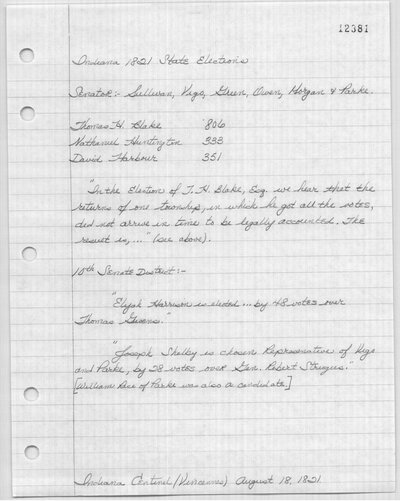 12381
Indiana 1821 State Elections
Senator:- Sullivan, Vigo, Green, Owen, Morgan & Parke.
Thomas H. Blake 806
Nathaniel Huntington 333
David Harbour 351
"In the Election of T. H. Blake, Esq. we hear that the
returns of one township, in which he got all the votes,
did not arrive in time to be legally accounted. The
result is, ..." (see above).
10th Senate District:-
"Elijah Harrison is elected ... by 48 votes over
Thomas Givens."
"Joseph Shelby is chosen Representative of Vigo
and Parke, by 28 votes over Gen. Robert Sturgus."
[William of Parke was also a candidate.]
Indiana Centinel (Vincennes) August 18, 1821.